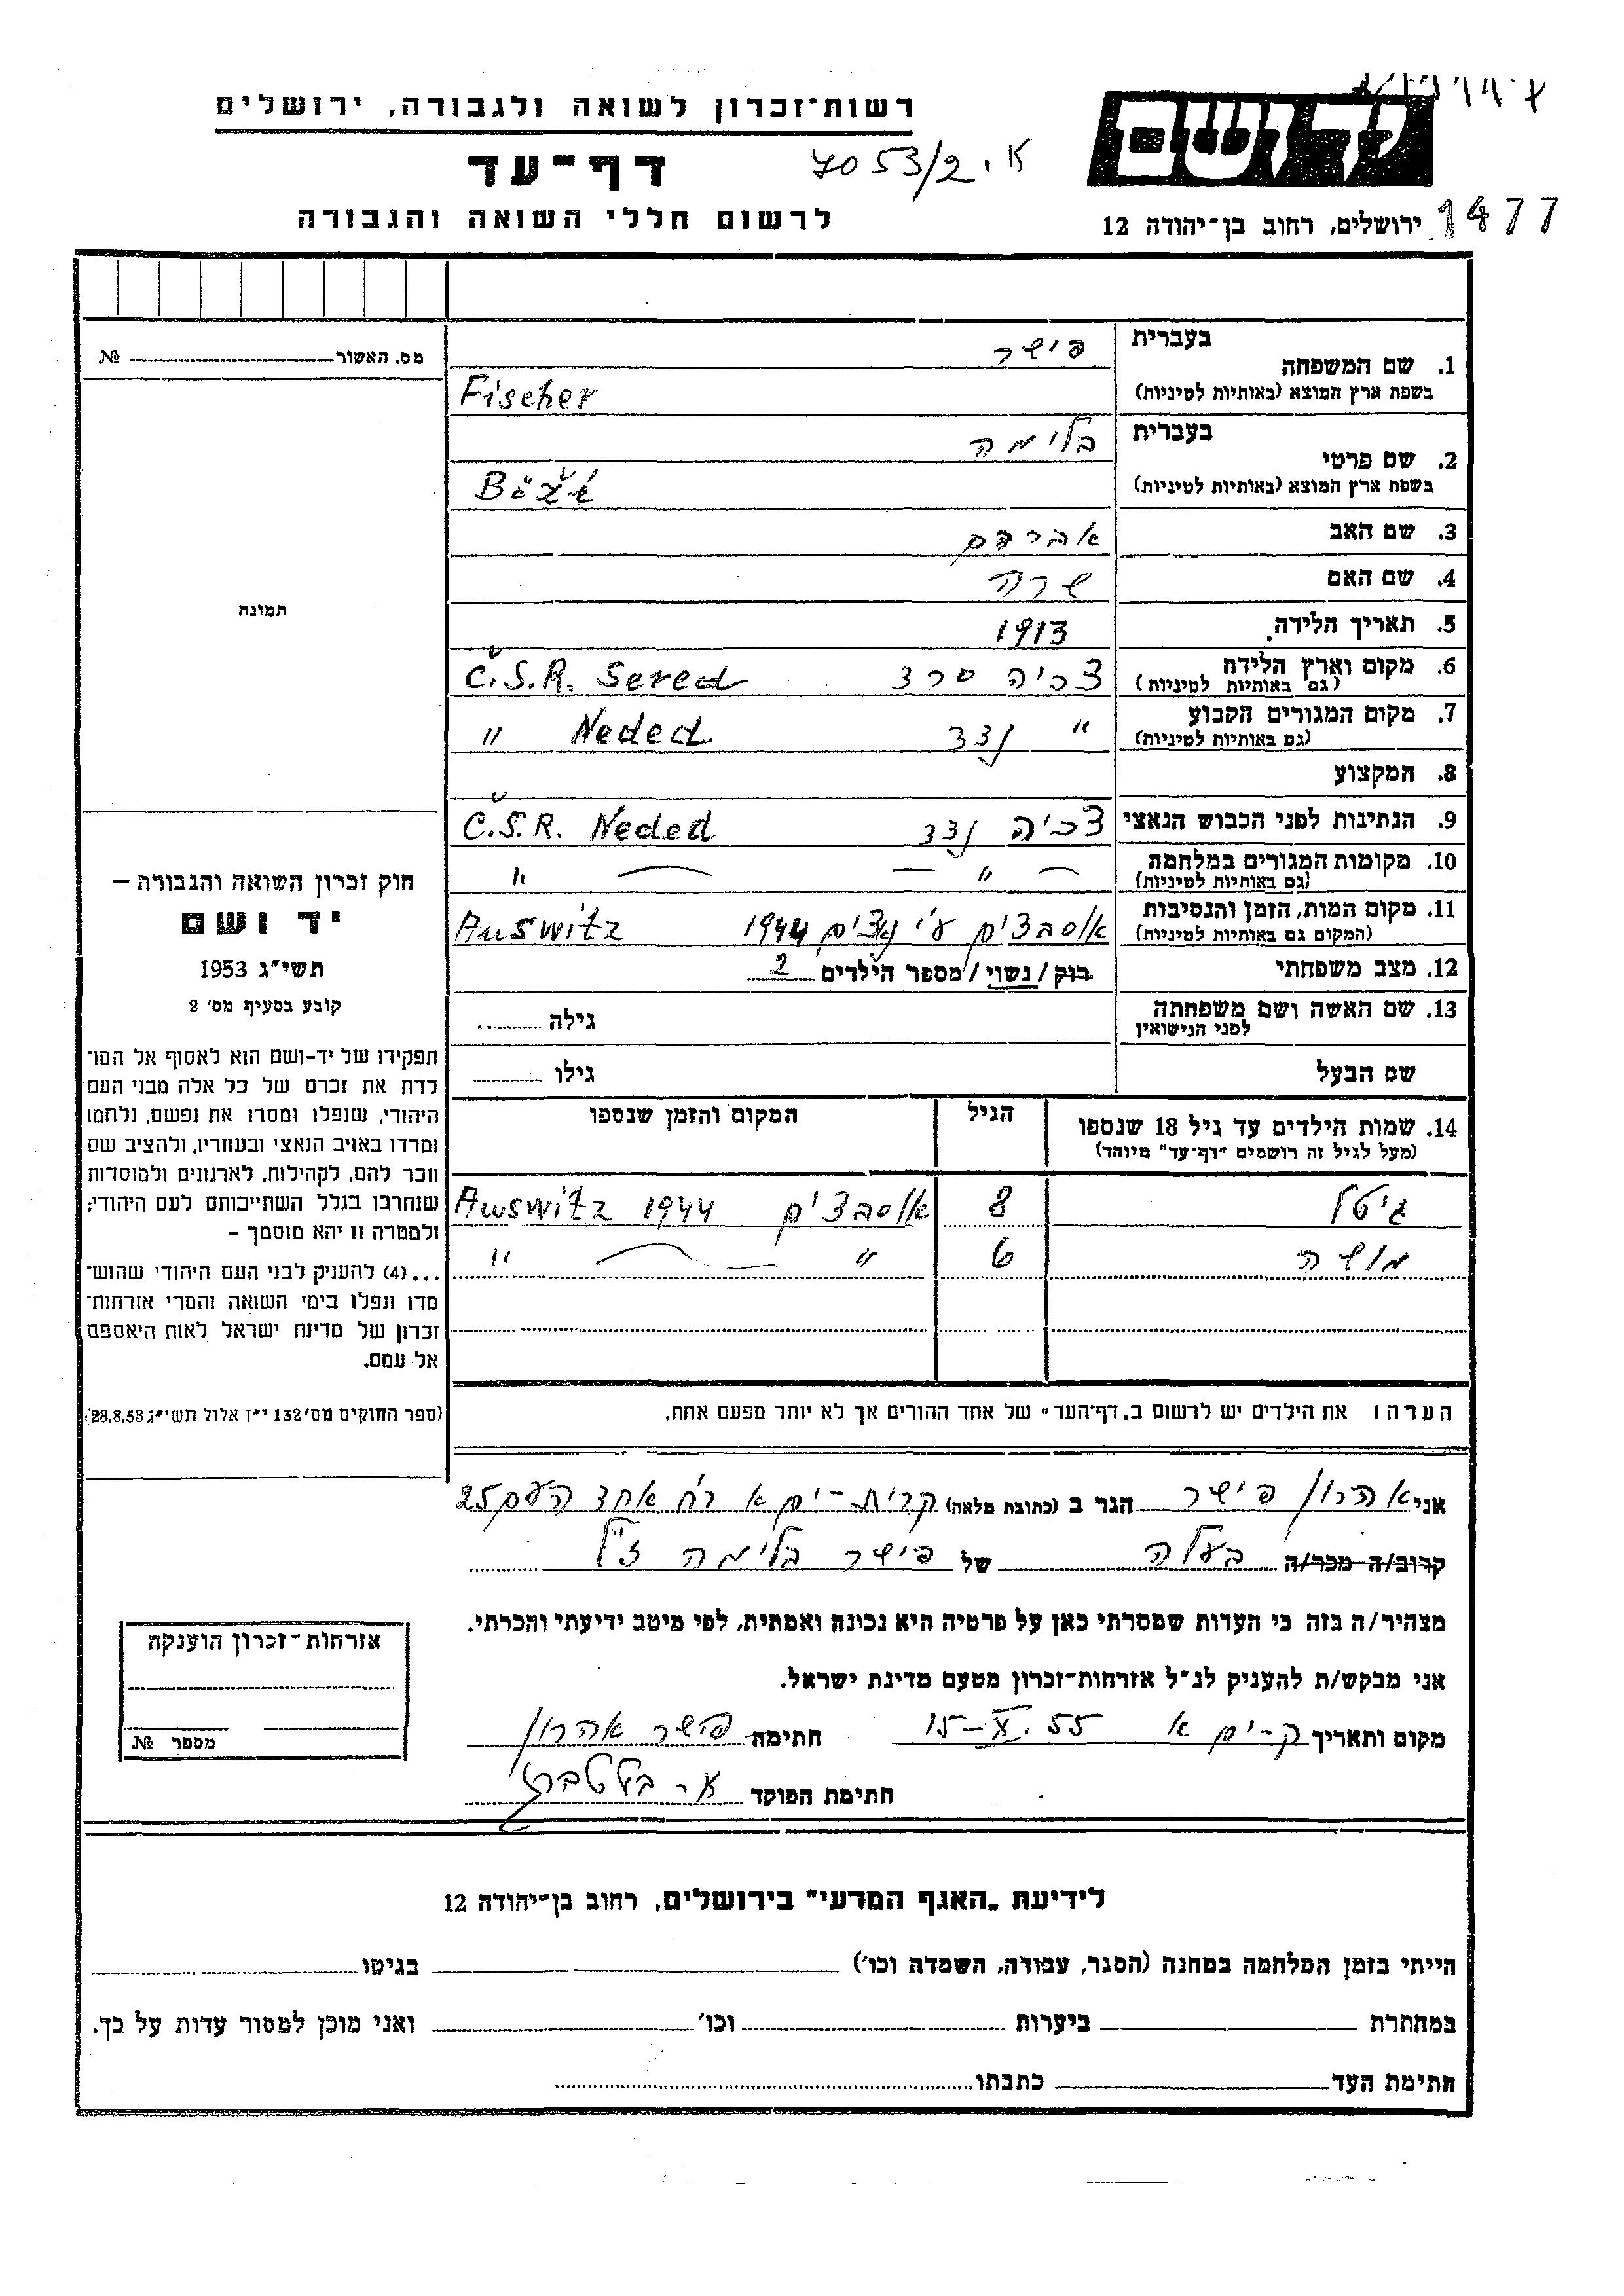 רשות-זכרון לשואה ולגבורה, ירושלים
יד ושם
דף-עד
7053/2 א.
לרשום חללי השואה והגבורה
ירושלים, רחוב בן-יהודה 12
1477
מס. האשור №
בעברית
פישר
1. שם המשפחה
בשפת ארץ המוצא (באותיות לטיניות)
Fischer
בעברית
בלימה
2. שם פרטי
בשפת ארץ המוצא (באותיות לטיניות)
3. שם האב אברהם
4. שם האם שרה
5. תאריך הלידה 1913
6. מקום וארץ הלידה צכיה סרד Č.S.R. Sered
(גם באותיות לטיניות)
7. מקום המגורים הקבוע " נדד Neded "
(גם באותיות לטיניות)
8. המקצוע
9. הנתינות לפני הכבוש הנאצי צכיה נדד Č.S.R. Neded
10. מקומות המגורים במלחמה — " — — "
(גם באותיות לטיניות)
11. מקום המות, הזמן והנסיבות אוסבצים ע"י נאצים 1944 Auswitz
(המקום גם באותיות לטיניות)
12. מצב משפחתי רוק/נשוי/מספר הילדים 2
13. שם האשה ושם משפחתה
לפני הנישואין
גילה
שם הבעל גילו
14. שמות הילדים עד גיל 18 שנספו
(מעל לגיל זה רושמים "דף-עד" מיוחד)
הגיל
המקום והזמן שנספו
גיטל 8 אוסבצים Auswitz 1944
משה 6 " — "
הערה: את הילדים יש לרשום ב"דף-העד" של אחד ההורים אך לא יותר מפעם אחת.
תמונה
חוק זכרון השואה והגבורה –
יד ושם
תשי"ג 1953
קובע בסעיף מס' 2
תפקידו של יד-ושם הוא לאסוף אל המו־
לדת את זכרם של כל אלה מבני העם
היהודי, שנפלו ומסרו את נפשם, נלחמו
ומרדו באויב הנאצי ובעוזריו, ולהציב שם
וזכר להם, לקהילות, לארגונים ולמוסדות
שנחרבו בגלל השתייכותם לעם היהודי;
ולמטרה זו יהא מוסמך –
...(4) להעניק לבני העם היהודי שהוש־
מדו ונפלו בימי השואה והמרי אזרחות־
זכרון של מדינת ישראל לאות היאספם
אל עמם.
(ספר החוקים מס' 132 י"ז אלול תשי"ג 28.8.53)
אני אהרון פישר הגר ב (כתובת מלאה) קרית-ים א רח אחד העם 25
קרוב/ה מכר/ה בעלה של פישר בלימה ז"ל
מצהיר/ה בזה כי העדות שמסרתי כאן על פרטיה היא נכונה ואמתית, לפי מיטב ידיעתי והכרתי.
אני מבקש/ת להעניק לנ"ל אזרחות-זכרון מטעם מדינת ישראל.
מקום ותאריך ק-ים א 15-X.55 חתימה פישר אהרון
חתימת הפוקד
אזרחות-זכרון הוענקה
מספר №
לידיעת „האגף המדעי" בירושלים, רחוב בן-יהודה 12
הייתי בזמן המלחמה במחנה (הסגר, עבודה, השמדה וכו') בגיטו
במחתרת ביערות וכו' ואני מוכן למסור עדות על כך.
חתימת העד כתבתו